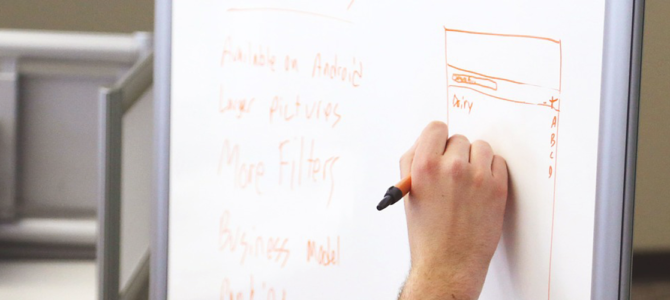 Available on Android
Larger Pictures
More Filters
Business Model
Dairy
A
B
C
D